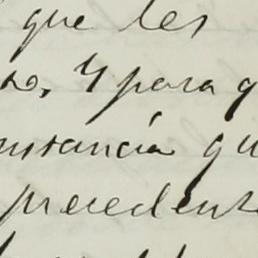 que les
Y para q
nstancia qu
precedent